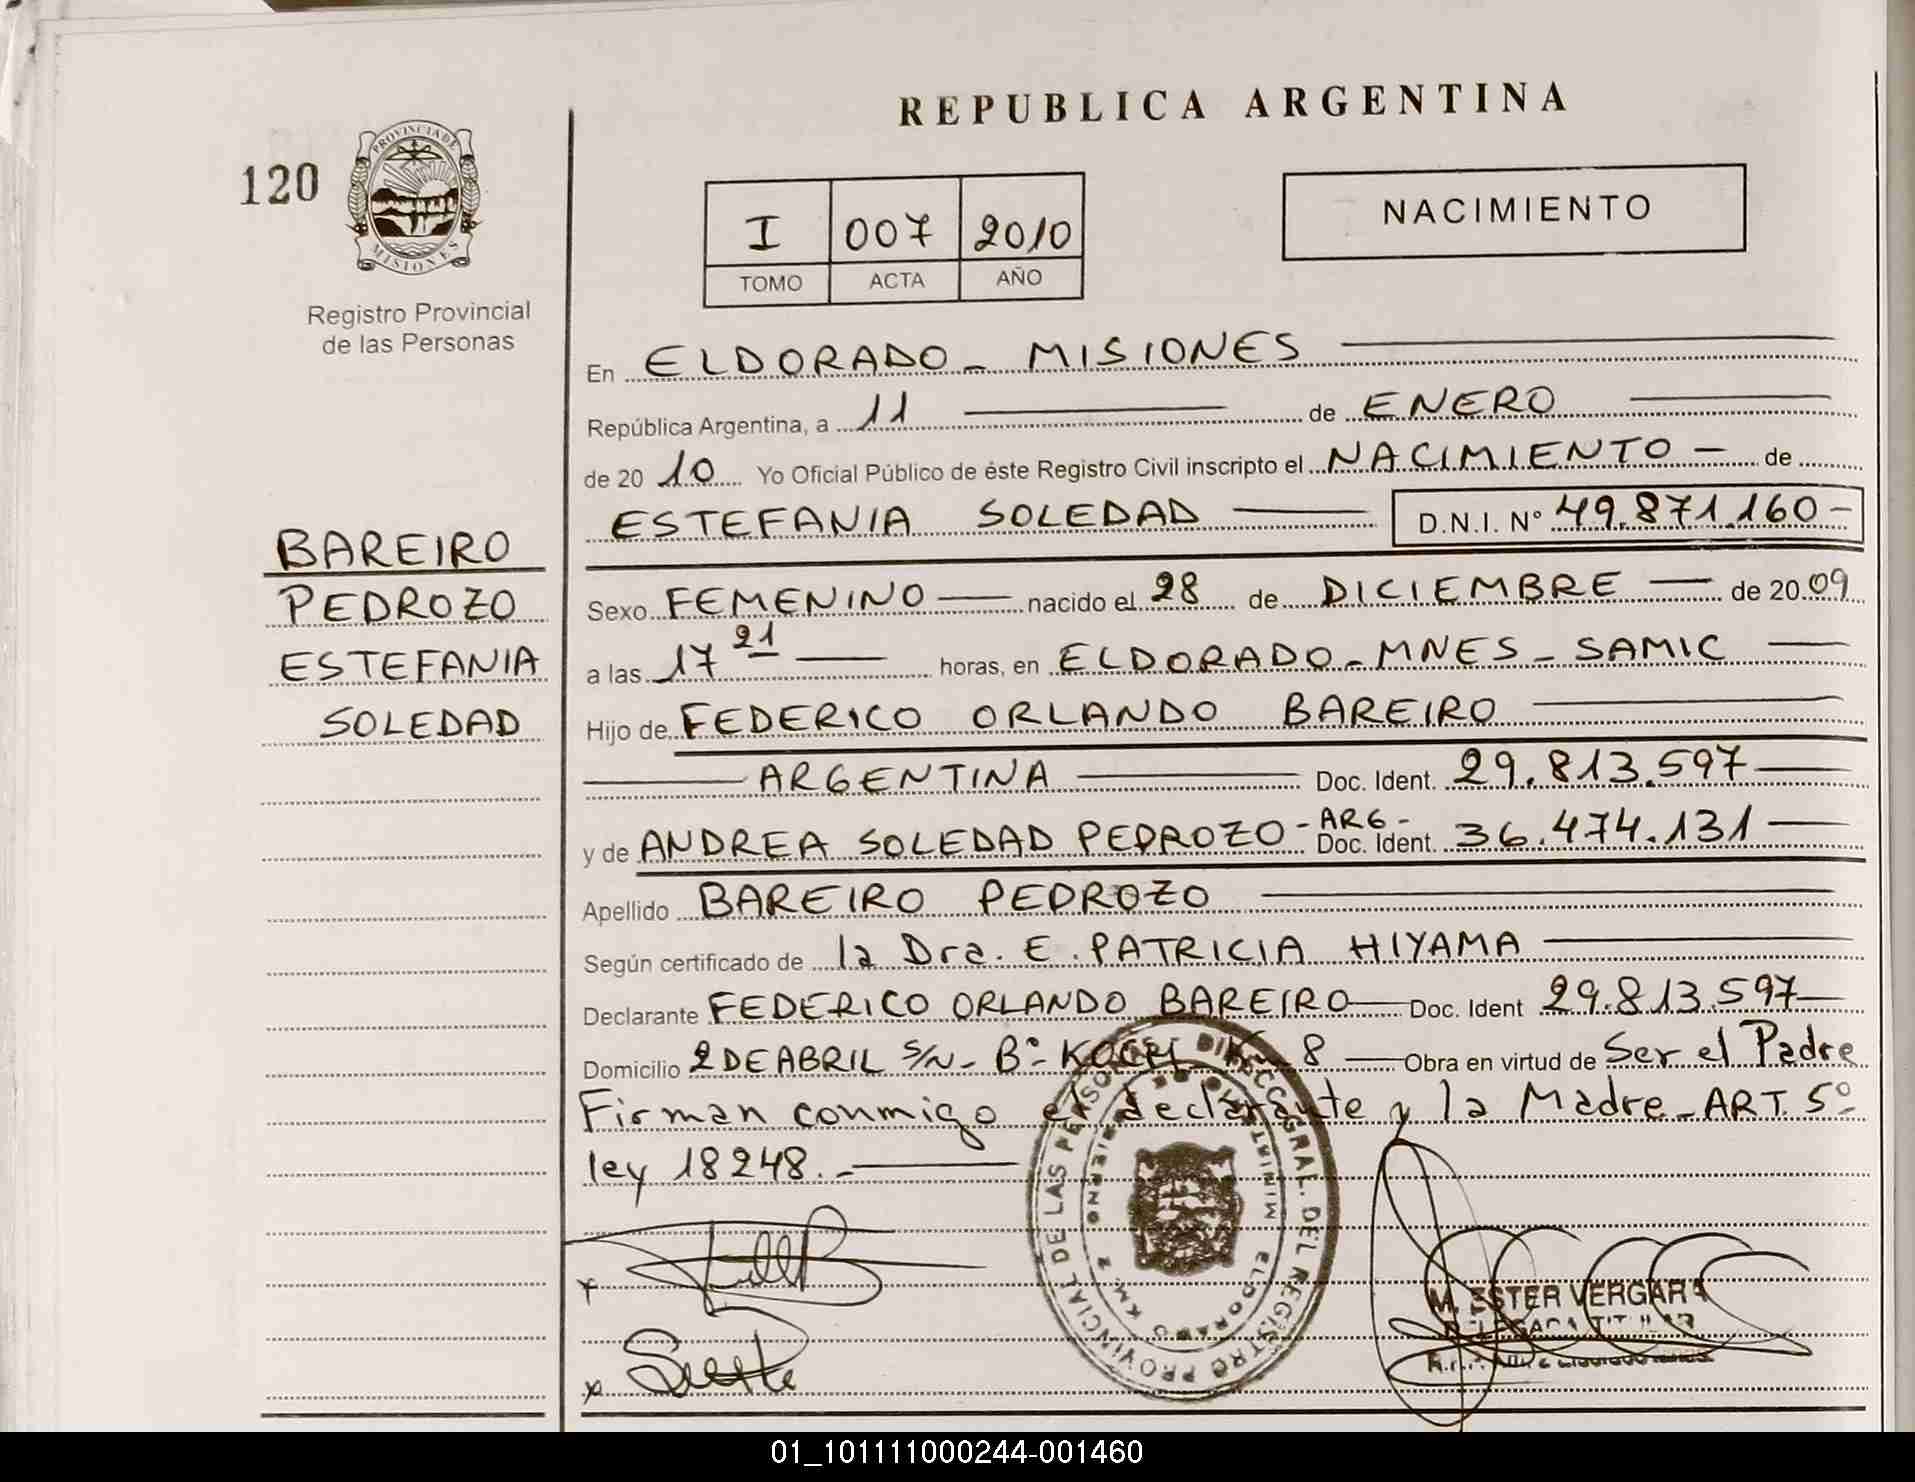 REPUBLICA ARGENTINA
120
PROVINCIA DE
MISIONES
Registro Provincial
de las Personas
I 007 2010
TOMO ACTA AÑO
NACIMIENTO
BAREIRO
PEDROZO
ESTEFANIA
SOLEDAD
En ELDORADO - MISIONES
República Argentina, a 11 de ENERO
de 20 10 Yo Oficial Público de éste Registro Civil inscripto el NACIMIENTO - de
ESTEFANIA SOLEDAD D.N.I. N° 49.871.160-
Sexo FEMENINO nacido el 28 de DICIEMBRE de 20 09
a las 17 21 horas, en ELDORADO - MNES - SAMIC
Hijo de FEDERICO ORLANDO BAREIRO
ARGENTINA Doc. Ident. 29.813.597
y de ANDREA SOLEDAD PEDROZO - ARG - Doc. Ident. 36.474.131
Apellido BAREIRO PEDROZO
Según certificado de la Dra. E. PATRICIA HIYAMA
Declarante FEDERICO ORLANDO BAREIRO Doc. Ident 29.813.597
Domicilio 2 DE ABRIL S/N - B° KOCH 8 Obra en virtud de Ser el Padre
Firman conmigo el declarante y la Madre - ART. 5°
ley 18248.-
DIRECC. GRAL. DEL REGISTRO PROVINCIAL DE LAS PERSONAS
ELDORADO KM. 2
M. ESTER VERGARA
DELEGADA TITULAR
01_101111000244-001460